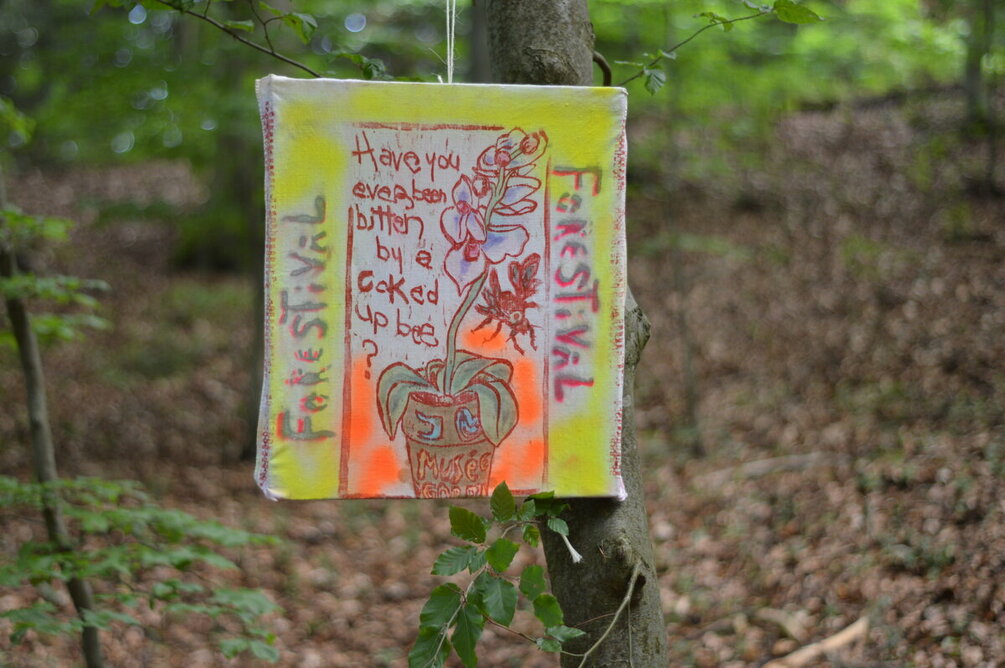 FORESTiVAL
Have you
ever been
bitten
by a
Coked
up bee
?
Musée
FORESTiVAL